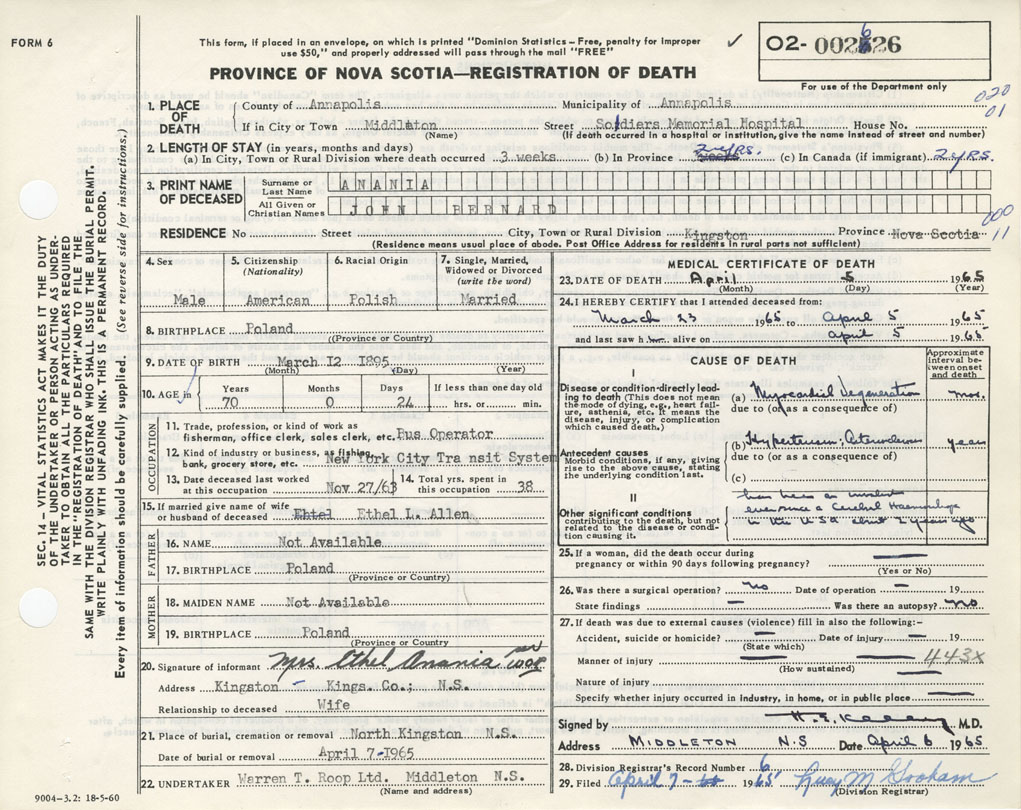 FORM 6
This form, if placed in an envelope, on which is printed "Dominion Statistics – Free, penalty for improper
use $50," and properly addressed will pass through the mail "FREE"
✓
O2- 002626
For use of the Department only
PROVINCE OF NOVA SCOTIA—REGISTRATION OF DEATH
020
01
1. PLACE OF DEATH
County of Annapolis Municipality of Annapolis
If in City or Town Middleton Street Soldiers Memorial Hospital House No.
(Name) (If death occurred in a hospital or institution, give the name instead of street and number)
2. LENGTH OF STAY (in years, months and days)
(a) In City, Town or Rural Division where death occurred 3 weeks (b) In Province 2 yrs. (c) In Canada (if immigrant) 2 yrs.
3. PRINT NAME OF DECEASED
Surname or Last Name ANANIA
All Given or Christian Names JOHN BERNARD
000
11
RESIDENCE No Street City, Town or Rural Division Kingston Province Nova Scotia
(Residence means usual place of abode. Post Office Address for residents in rural parts not sufficient)
4. Sex Male
5. Citizenship (Nationality) American
6. Racial Origin Polish
7. Single, Married, Widowed or Divorced (write the word) Married
8. BIRTHPLACE Poland
((Province or Country)
9. DATE OF BIRTH March 12 1895
(Month) (Day) (Year)
10. AGE in Years 70 Months 0 Days 24 If less than one day old hrs. or min.
OCCUPATION
11. Trade, profession, or kind of work as
fisherman, office clerk, sales clerk, etc. Bus Operator
12. Kind of industry or business, as fishing,
bank, grocery store, etc. New York City Tra nsit System
13. Date deceased last worked at this occupation Nov 27/63
14. Total yrs. spent in this occupation 38
15. If married give name of wife
or husband of deceased Ehtel Ethel L. Allen
FATHER
16. NAME Not Available
17. BIRTHPLACE Poland
(Province or Country)
MOTHER
18. MAIDEN NAME Not Available
19. BIRTHPLACE Poland
(Province or Country)
20. Signature of informant Mrs. Ethel Anania
Address Kingston – Kings. Co.; N.S.
Relationship to deceased Wife
21. Place of burial, cremation or removal North Kingston N.S.
Date of burial or removal April 7-1965
22. UNDERTAKER Warren T. Roop Ltd. Middleton N.S.
(Name and address)
9004-3.2: 18-5-60
MEDICAL CERTIFICATE OF DEATH
23. DATE OF DEATH April 5 1965
(Month) (Day) (Year)
24. I HEREBY CERTIFY that I attended deceased from:
March 23 1965 to April 5 1965
and last saw him alive on April 5 1965
CAUSE OF DEATH
Approximate interval between onset and death
I
Disease or condition directly leading to death (This does not mean the mode of dying, e.g., heart failure, asthenia, etc. It means the disease, injury, or complication which caused death.)
(a) Myocardial Degeneration mos.
due to (or as a consequence of)
Antecedent causes
Morbid conditions, if any, giving rise to the above cause, stating the underlying condition last.
(b) Hypertension; years
due to (or as a consequence of)
(c)
II
Other significant conditions
contributing to the death, but not related to the disease or condition causing it.
has been an invalid
ever since a Cerebral Haemorrhage
in the U.S.A. about 2 years ago
25. If a woman, did the death occur during
pregnancy or within 90 days following pregnancy? —
(Yes or No)
26. Was there a surgical operation? no Date of operation — 19
State findings — Was there an autopsy? no
27. If death was due to external causes (violence) fill in also the following:-
Accident, suicide or homicide? — Date of injury — 19
(State which)
Manner of injury — 443X
(How sustained)
Nature of injury —
Specify whether injury occurred in industry, in home, or in public place —
Signed by M.D.
Address MIDDLETON N S Date April 6 1965
28. Division Registrar's Record Number 6
29. Filed April 7 1965 Lucy M
(Division Registrar)
SEC. 14 – VITAL STATISTICS ACT MAKES IT THE DUTY
OF THE UNDERTAKER OR PERSON ACTING AS UNDER-
TAKER TO OBTAIN ALL THE PARTICULARS REQUIRED
IN THE "REGISTRATION OF DEATH" AND TO FILE THE
SAME WITH THE DIVISION REGISTRAR WHO SHALL ISSUE THE BURIAL PERMIT.
WRITE PLAINLY WITH UNFADING INK. THIS IS A PERMANENT RECORD.
Every item of information should be carefully supplied. (See reverse side for instructions.)